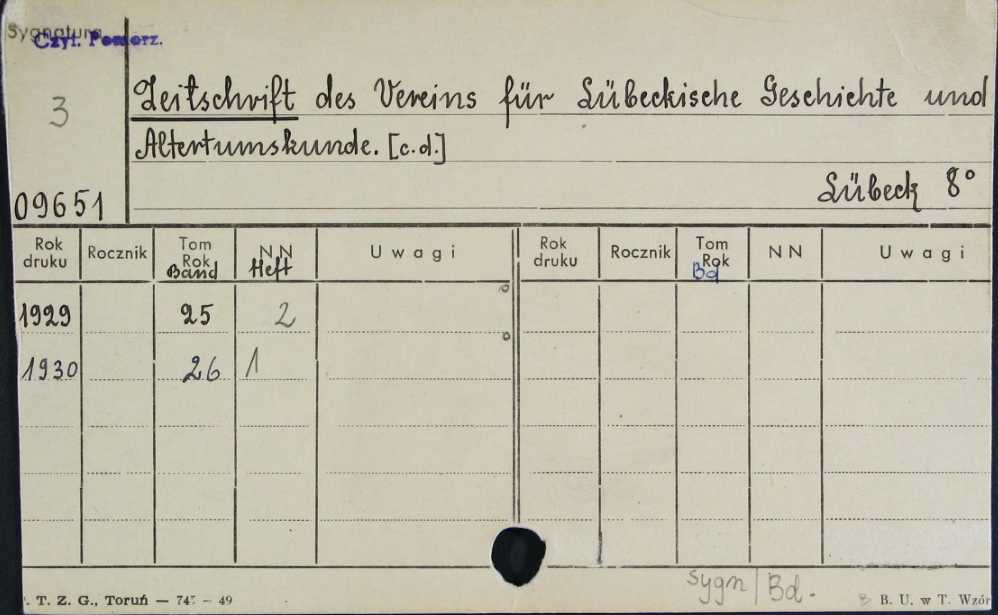 Sygnatura
Czyt. Pomorz.
3
Zeitschrift des Vereins für Lübeckische Geschichte und
Altertumskunde. [c.d.]
Lübeck 8°
09651
Rok druku Rocznik Tom Rok Band NN Heft Uwagi Rok druku Rocznik Tom Rok Bd NN Uwagi
1929 25 2
1930 26 1
sygn/Bd.
T. Z. G., Toruń — 745 - 49
B. U. w T. Wzór